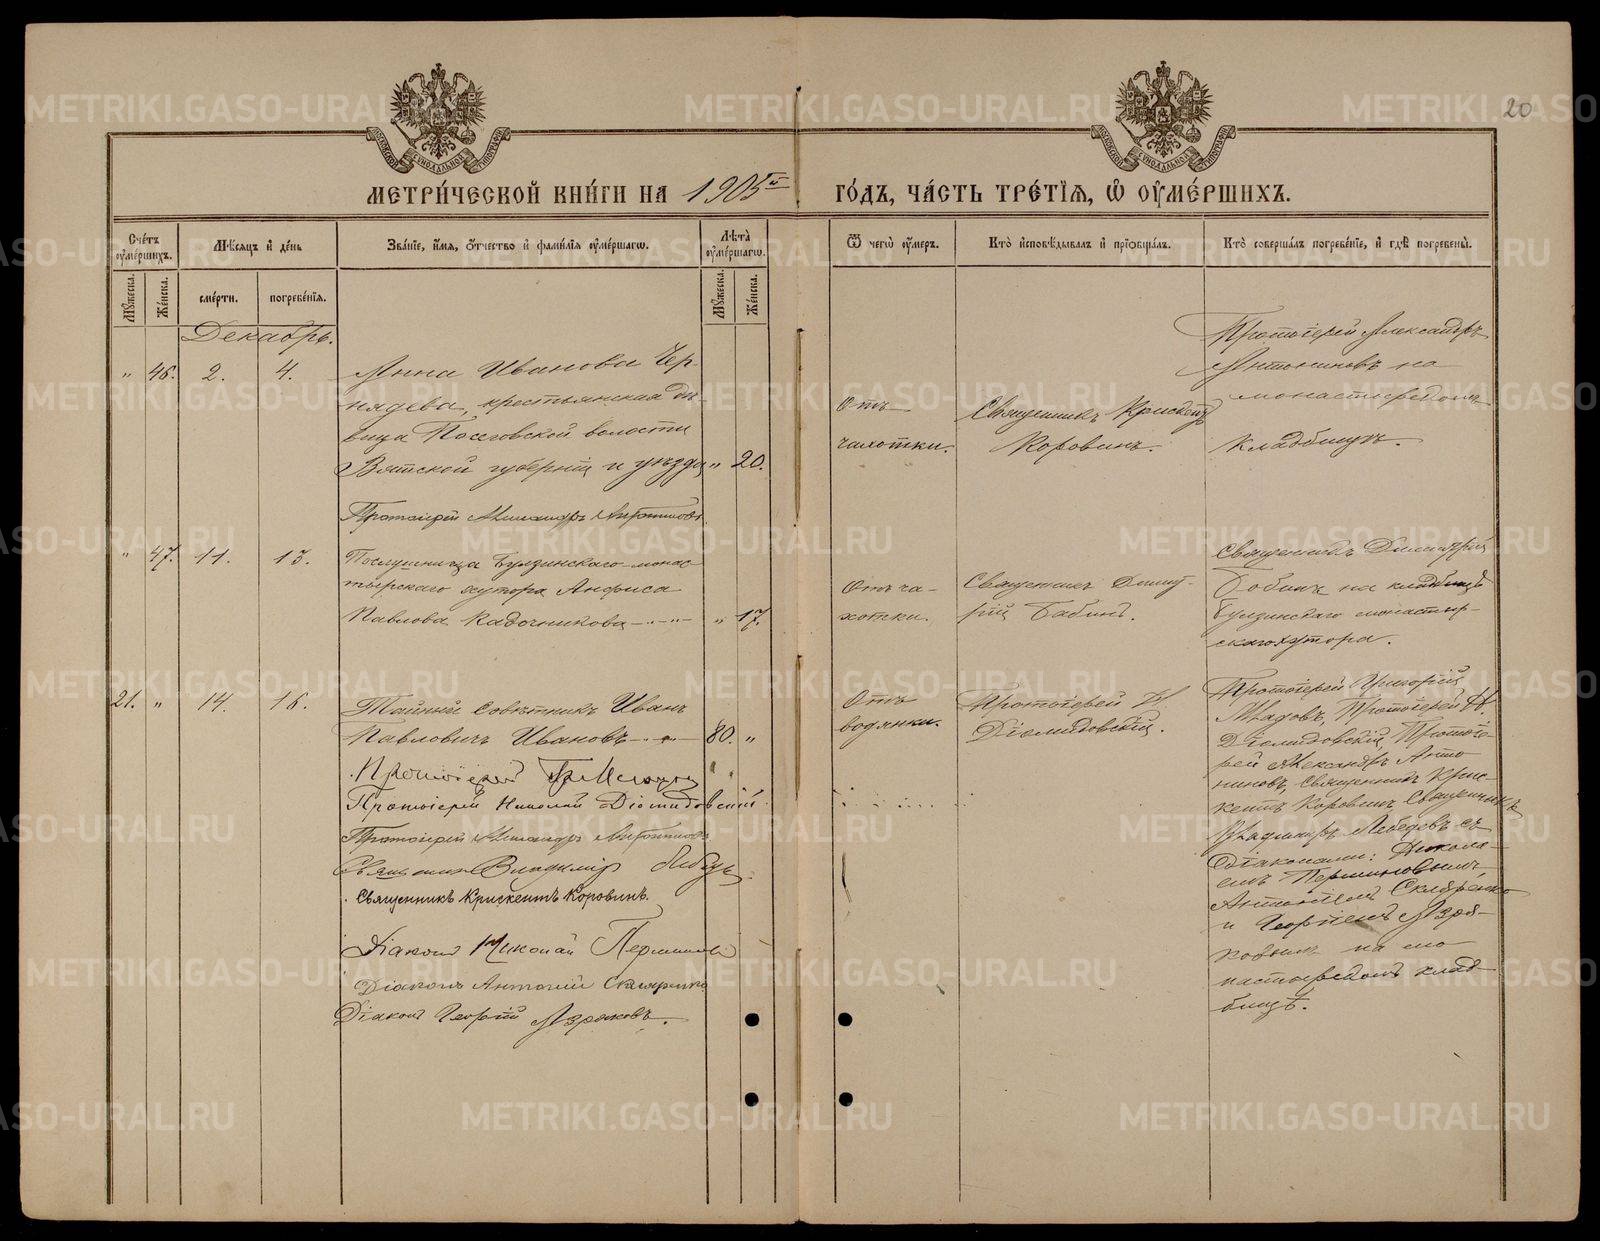 20
МЕТРИ́ЧЕСКОЙ КНИ́ГИ НА 1905й ГО́ДЪ, ЧА́СТЬ ТРЕ́ТІѦ, Ѡ ОУМЕ́РШИХЪ.
Сче́тъ оуме́ршихъ.
Мꙋжеска.
Же́нска.
Мѣ́сяцъ и де́нь
сме́рти.
погребе́нїѧ.
Зва́нїе, и́мѧ, о́тчество и фами́лїѧ оуме́ршагѡ.
Лѣ́та оуме́ршагѡ.
Мꙋжеска.
Же́нска.
Ѿ чегѡ̀ оу́меръ.
Кто̀ исповѣ́дывалъ и прїѡбща́лъ.
Кто̀ соверша́лъ погребе́нїе, и гдѣ̀ погребены̀.
Декабрь.
" 46. 2. 4.
Анна Иванова Чер-
нядева, крестьянская дѣ-
вица Пасеговской волости
Вятской губерніи и уѣзда " 20.
Отъ
чахотки.
Священникъ Крискентъ
Коровинъ.
Протоіерей Александръ
Антониновъ на
монастырскомъ
кладбищѣ.
Протоіерей Александръ Антониновъ
" 47. 11. 13.
Послушница Булзинскаго монас-
тырскаго хутора Анфиса
Павлова Кадочникова " 17.
Отъ ча-
хотки.
Священникъ Димит-
рій Бабинъ.
Священникъ Димитрій
Бабинъ на кладбищѣ
Булзинскаго монастыр-
скаго хутора.
21. " 14. 16.
Тайный Совѣтникъ Иванъ
Павловичъ Ивановъ 80. "
Отъ
водянки.
Протоіерей Н.
Діомидовскій.
Протоіерей Григорій
Мѣдовъ, Протоіерей Н.
Діомидовскій, Протоіе-
рей Александръ Анто-
ниновъ, Священникъ Крис-
кентъ Коровинъ, Священникъ
Владиміръ Лебедевъ съ
діаконами: Никола-
емъ Перминовымъ,
Антоніемъ Скляренко
и Георгіемъ
на мо
настырскомъ клад
бищѣ.
Протоіерей
Протоіерей Николай Діомидовскій
Протоіерей Александръ Антониновъ
Священникъ Владиміръ
Священникъ Крискентъ Коровинъ.
Діаконъ Николай Перминовъ
Діаконъ Антоній Скляренко
Діаконъ Георгій
METRIKI.GASO-URAL.RU